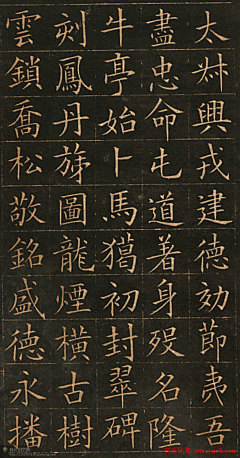 太叔興戎建德効節夷吾
盡忠命屯道著身歿名隆
牛亭始卜馬獦初封翠碑
刻鳳丹旐圖龍煙橫古樹
雲鎖喬松敬銘盛德永播